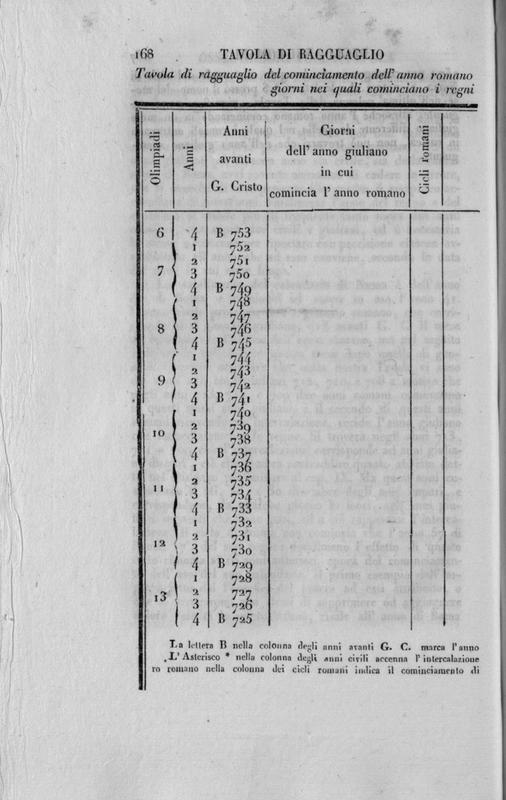 168 TAVOLA DI RAGGUAGLIO
Tavola di ragguaglio del cominciamento dell' anno romano
giorni nei quali cominciano i regni
Olimpiadi
Anni
Anni
avanti
G. Cristo
Giorni
dell' anno giuliano
in cui
comincia l' anno romano
Cicli romani
6 4 B 753
1 752
2 751
7 3 750
4 B 749
1 748
2 747
8 3 746
4 B 745
1 744
2 743
9 3 742
4 B 741
1 740
2 739
10 3 738
4 B 737
1 736
2 735
11 3 734
4 B 733
1 732
2 731
12 3 730
4 B 729
1 728
2 727
13 3 726
4 B 725
La lettera B nella colonna degli anni avanti G. C. marca l' anno
L' Asterisco * nella colonna degli anni civili accenna l' intercalazione
ro romano nella colonna dei cicli romani indica il cominciamento di